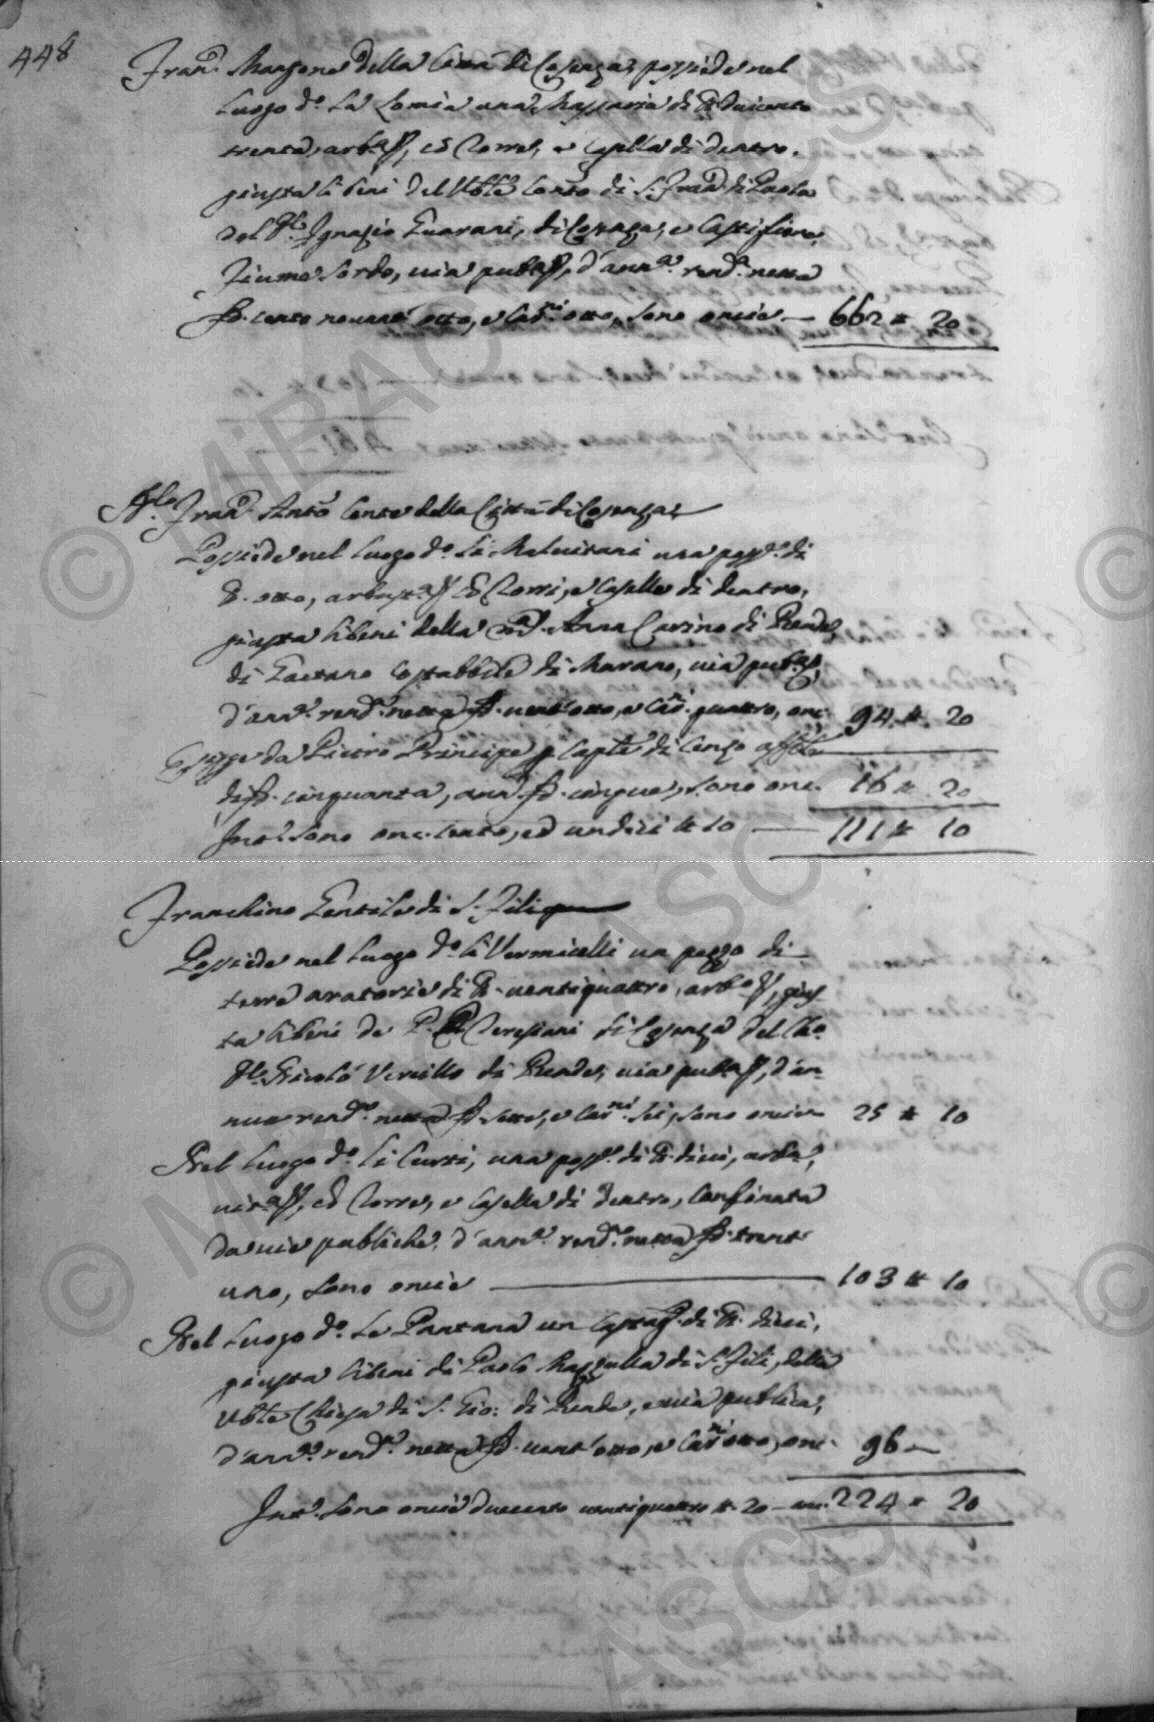 448
Fran.º Manzone della Città di Cosenza, possiede nel
luogo d.º La Lomia una Massaria di tt.ª duicento
trenta, arb.ta, ed Torre, e Casella di dentro,
giusta li beni del Vble Conv.to di S. Fran.º di Paola
del M.co Ignazio Guarani, di Cosenza, e Castifiore,
Fiume Sordo, via publ.ca, d'ann.a rend.a netta
D. cento novant'otto, e Car.ni otto, sono oncie — 662 tt 20
M.co Fran.º Ant.º Conte della Città di Cosenza
Possiede nel luogo d.º li Malvitani una poss.e di
tt. otto, arbust.ta ed Torri, e Caselle di dentro,
giusta li beni della M.ca Anna Carino di Rende,
di Gaetano Costabbile di Marano, via publ.ca,
d'ann.a rend.a netta D. vent'otto, e Car.ni quattro, onc. 94 tt. 20
Esigge da Pietro Principe p Cap.le di Censo
di D. cinquanta, ann. D. cinque, sono onc. 16 tt 20
Int.º sono onc. cento, ed undici tt 10 — 111 tt 10
Franchino Gentile di S. Fili
Possiede nel luogo d.º li Vermicelli un pezzo di
terre aratorie di tt. ventiquattro, arb.te, gius
ta li beni de P.P. Teresiani di Cosenza del
M.co Nicolò Vercillo di Rende, via publ.ca, d'an
nua rend.a netta D. sette, e Car.ni sei, sono oncie 25 tt 10
Nel luogo d.º li Curti, una poss.e di tt. dieci, arb.ta,
vit.ta, ed Torre, e Casella di dentro, confinata
da vie publiche, d'ann.a rend.a netta D. trent
uno, sono oncie — 103 tt 10
Nel luogo d.º Le Pantana un di tt. dieci,
giusta li beni di Paolo Mazzulla di S. Fili, della
Vble Chiesa di S. Gio: di Rende, e via publica,
d'ann.a rend.a netta D. vent'otto, e Car.ni otto, onc. 96 —
Int.º sono oncie duecento ventiquattro tt. 20 — onc. 224 tt 20
© MiBAC ASCS